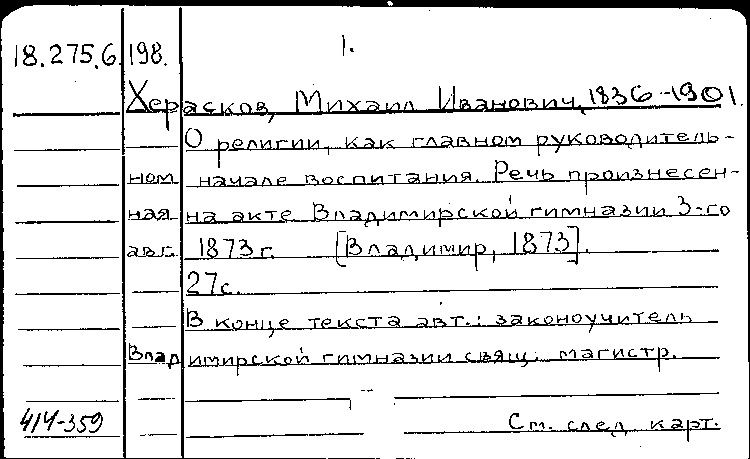 18.275.6.198. 1.
Херасков, Михаил Иванович, 1836-1901.
О религии, как главном руководитель-
ном начале воспитания. Речь произнесен-
ная на акте Владимирской гимназии 3-го
авг. 1873 г. [Владимир, 1873].
27с.
В конце текста авт.: законоучитель
Владимирской гимназии свящ. магистр.
414-359 См. след. карт.